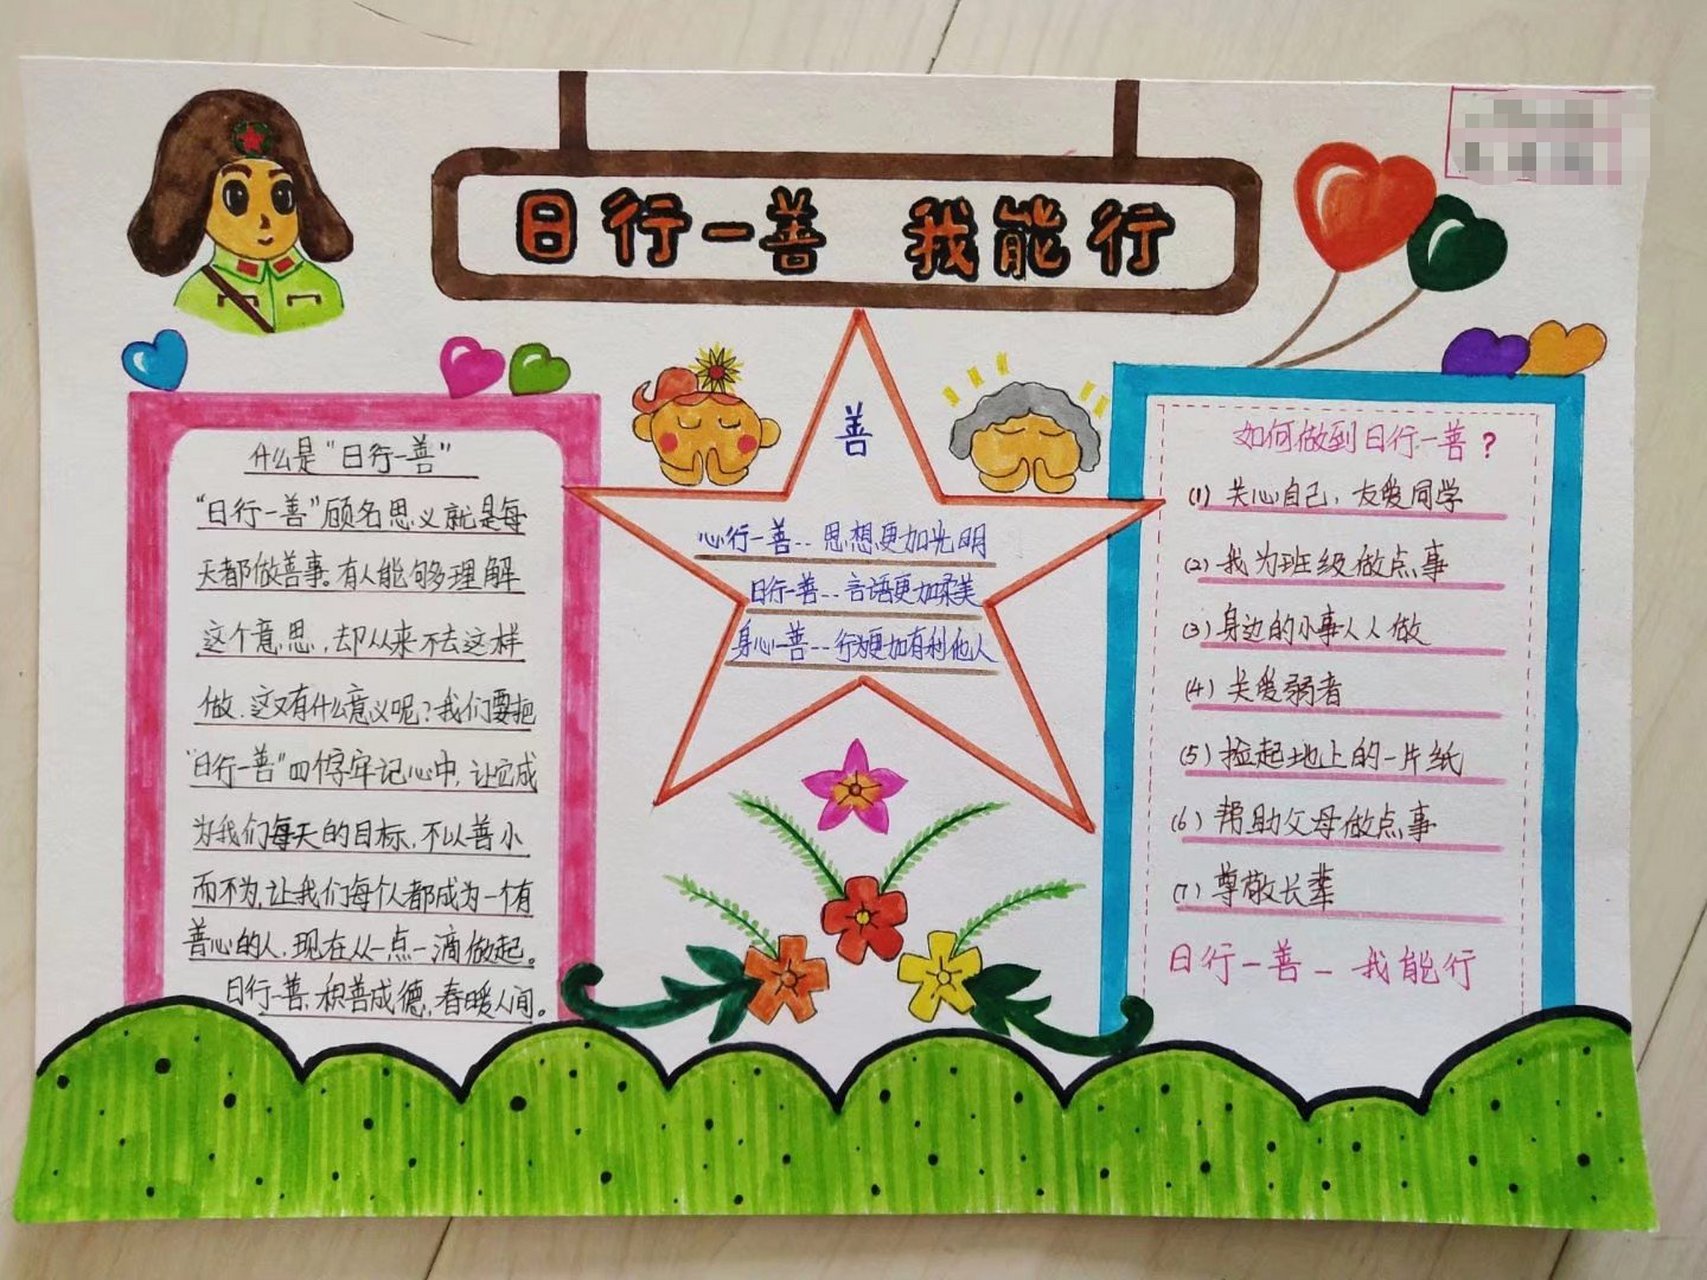 日行一善 我能行
什么是“日行一善”
“日行一善”顾名思义就是每
天都做善事。有人能够理解
这个意思,却从来不去这样
做,这又有什么意义呢?我们要把
“日行一善”四个字牢记心中,让它成
为我们每天的目标,不以善小
而不为,让我们每个人都成为一个有
善心的人,现在从一点一滴做起。
日行一善,积善成德,春暖人间。
善
心行一善--思想更加光明
日行一善--言语更加柔美
身心一善--行为更加有利他人
如何做到日行一善?
(1)关心自己,友爱同学
(2)我为班级做点事
(3)身边的小事人人做
(4)关爱弱者
(5)捡起地上的一片纸
(6)帮助父母做点事
(7)尊敬长辈
日行一善-我能行